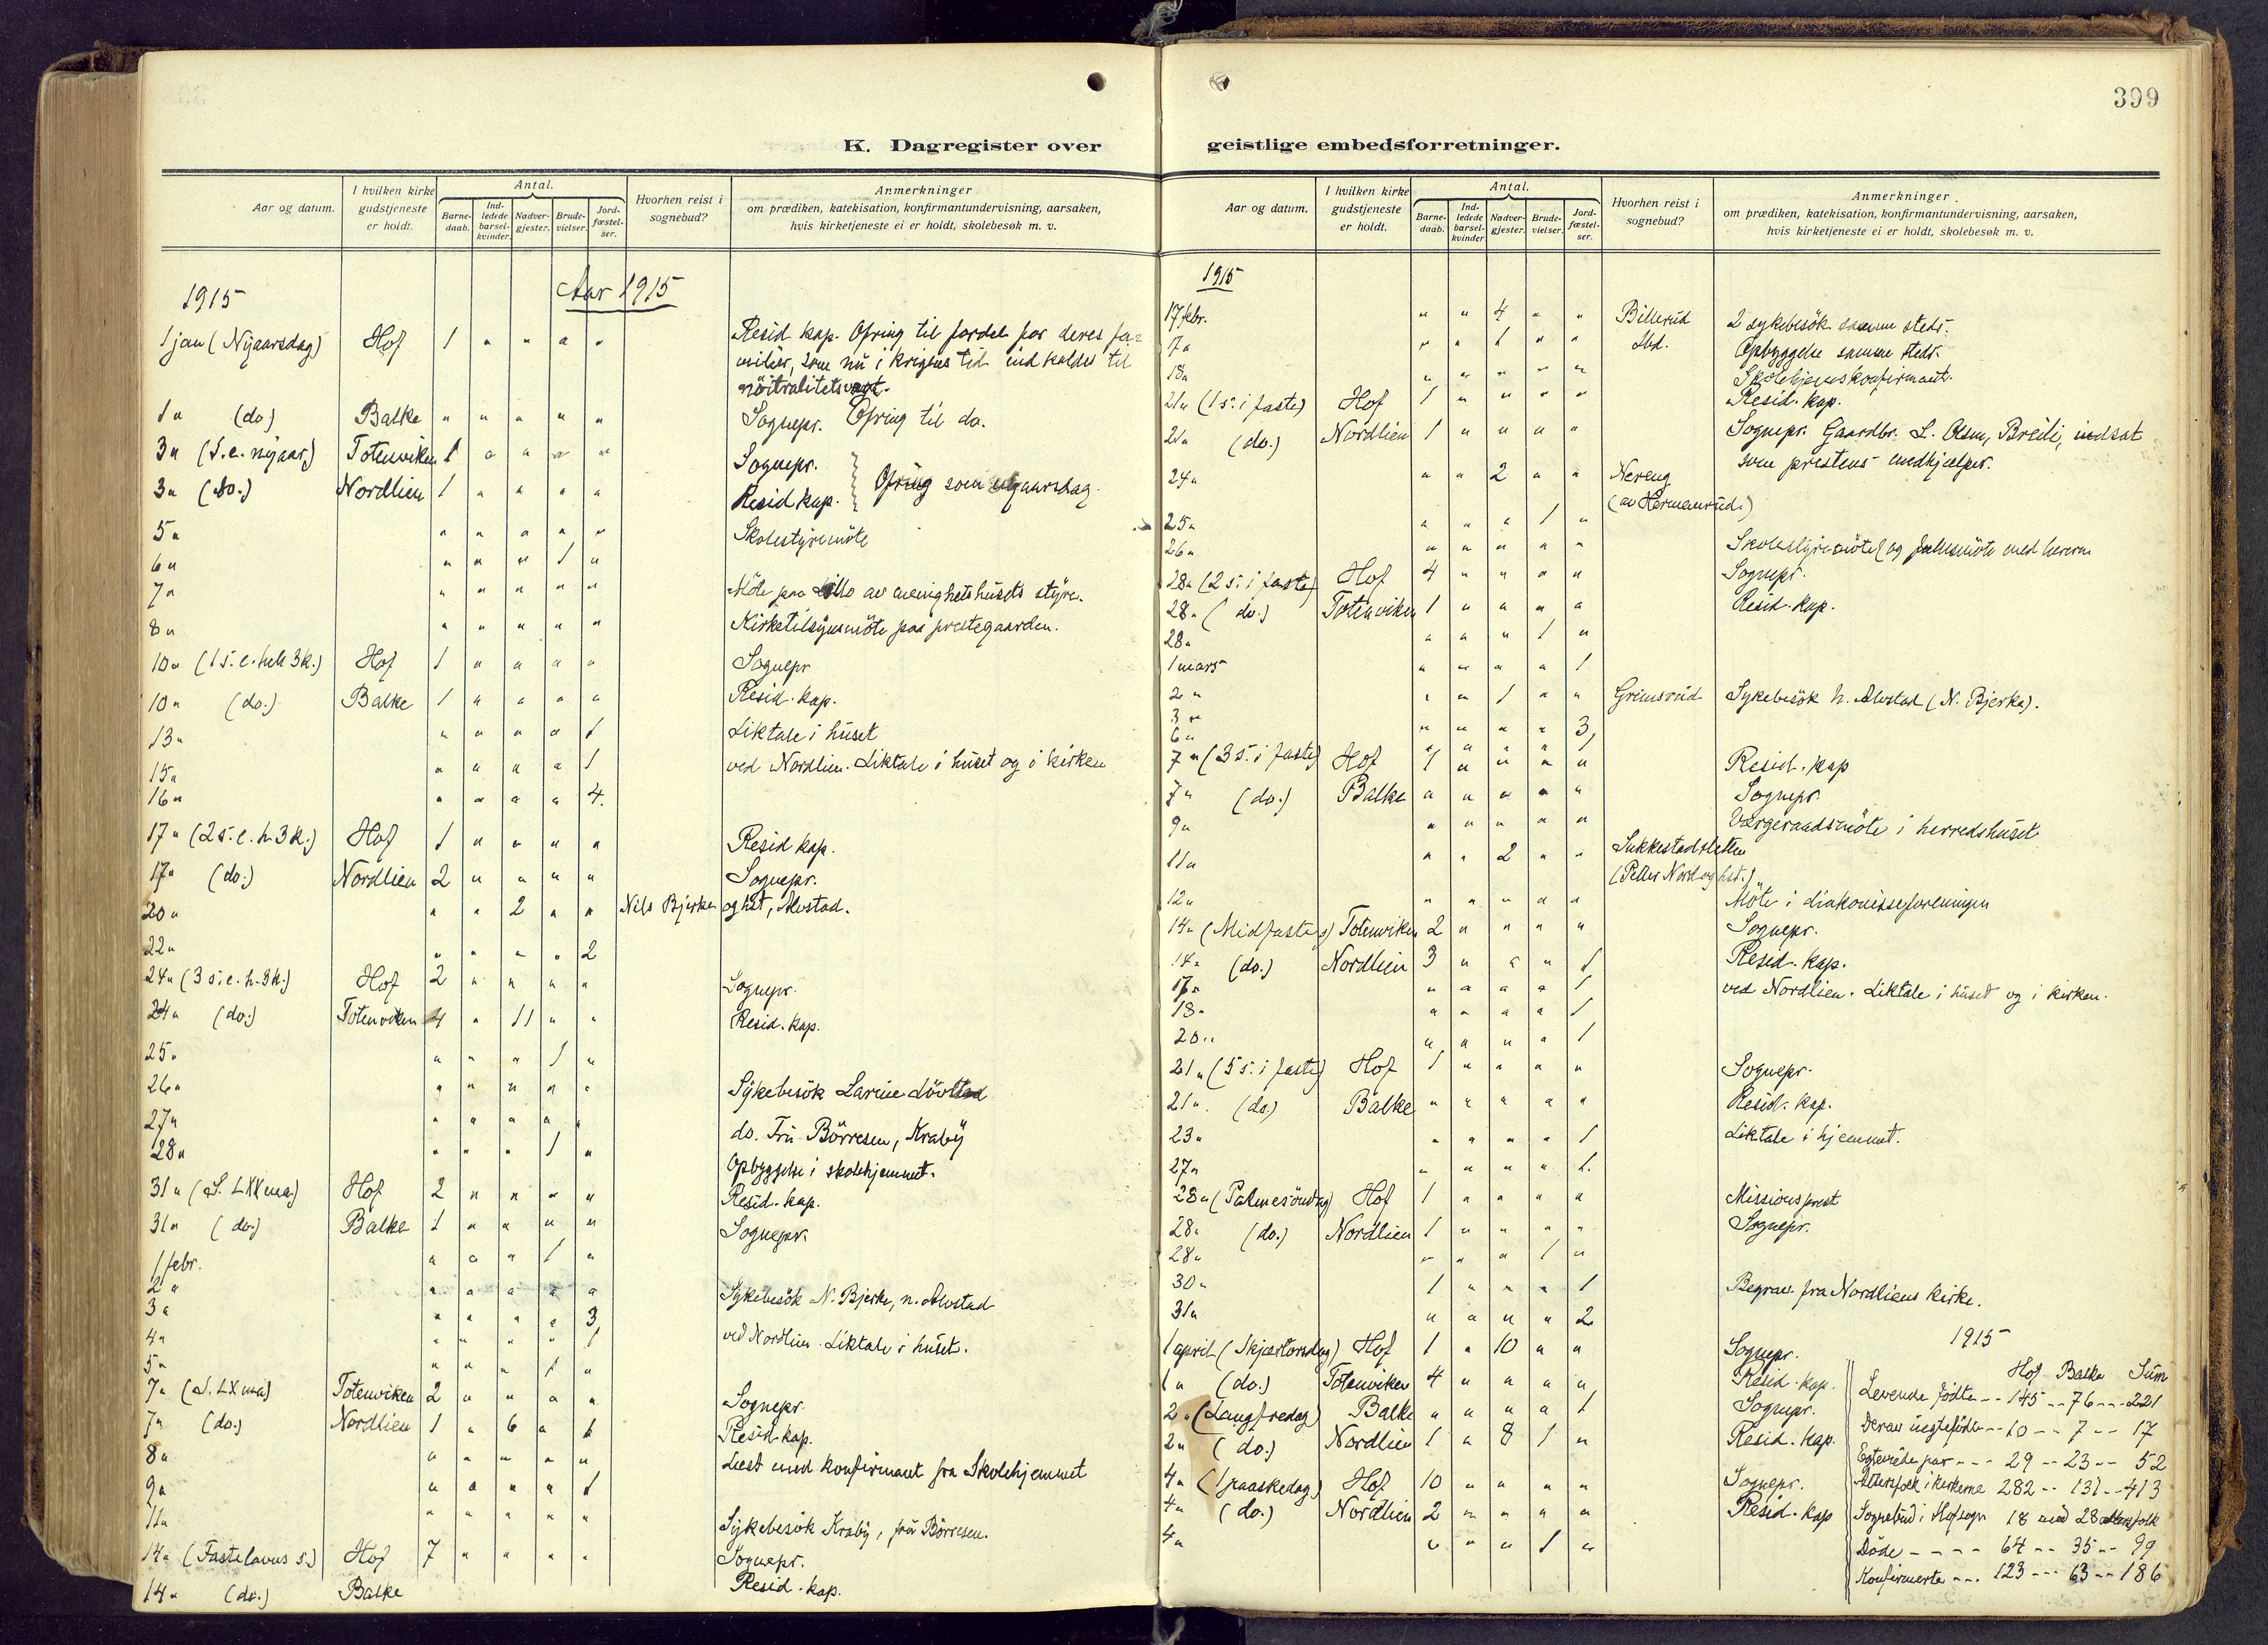 399
K. Dagregister over
Aar og datum.
I hvilken kirke gudstjeneste er holdt.
Antal.
Barne-daab.
Ind-ledede barsel-kvinder.
Nadver-gjester.
Brude-vielser.
Jord-fæstel-ser.
Hvorhen reist i sognebud?
Anmerkninger
om prædiken, katekisation, konfirmantundervisning, aarsaken,
hvis kirketjeneste ei er holdt, skolebesøk m. v.
1915 Aar 1915
1 jan (Nyaarsdag) Hof 1 " " " " Resid kap. Ofring til fordel for deres fa-
milier, som nu i krigens tid indkaldes til
nöitralitetsvagt.
1 " (do) Balke " " " " " Sognepr. Ofring til do.
3 " (S. e. nyaar) Totenviken 1 " " " " Sognepr.
3 " (do.) Nordlien 1 " " " " Resid kap. Ofring som nyaarsdag.
5 " " " " " " Skolestyremöte
6 " " " " 1 "
7 " " " " " " Möte paa Lillo av menighetshusets styre.
8 " " " " " " Kirketilsynsmöte paa prestegaarden.
10 " (1 s. e. hell 3 k.) Hof 1 " " " " Sognepr
10 " (do.) Balke 1 " " " " Resid. kap.
13 " " " " " 1 Liktale i huset
15 " " " " " 1 ved Nordlien. Liktale i huset og i kirken
16 " " " " " 4.
17 " (2 s. e. h. 3 k.) Hof 1 " " " " Resid kap.
17 " (do.) Nordlien 2 " " " " Sognepr.
20 " " " 2 " " Nils Bjerke og hst, Alvstad.
22 " " " " " 2
24 " (3 s. e. h. 3 k.) Hof 2 " " " " Sognepr.
24 " (do.) Totenviken 4 " 11 " " Resid. kap.
25 " " " " 1 "
26 " " " " " " Sykebesök Larine Lövstad
27 " " " " " " do. Fru Börresen, Kraby
28 " " " " 1 " Opbyggelse i skolehjemmet.
31 " (S. LXXma) Hof 2 " " " " Resid. kap.
31 " (do.) Balke 1 " " " " Sognepr.
1 febr. " " " 1 "
2 " " " " " " Sykebesök N. Bjerke, n. Alvstad
3 " " " " " 3
4 " " " " " 1 ved Nordlien. Liktale i huset.
5 " " " " 1 "
7 " (S. LXma) Totenviken 2 " " " " Sognepr.
7 " (do.) Nordlien 1 " 6 " 1 Resid. kap.
8 " " " " " " Læst med konfirmant fra Skolehjemmet
9 " " " " " 1
11 " " " " " " Sykebesök Kraby, fru Börresen.
14 " (Fastelavns s.) Hof 7 " " " " Sognepr.
14 " (do.) Balke Resid. kap.
geistlige embedsforretninger.
Aar og datum.
I hvilken kirke gudstjeneste er holdt.
Antal.
Barne-daab.
Ind-ledede barsel-kvinder
Nadver-gjester.
Brude-vielser.
Jord-fæstel-ser.
Hvorhen reist i sognebud?
Anmerkninger
om prædiken, katekisation, konfirmantundervisning, aarsaken,
hvis kirketjeneste ei er holdt, skolebesøk m. v.
1915
17 febr. " " 4 " " Billerud 2 sykebesök samme steds.
" " 1 " " Ibd. Opbyggelse samme steds.
18 " " " " " " Skolehjemskonfirmant.
21 " (1 s. i faste) Hof 1 " " " " Resid. kap.
21 " (do.) Nordlien 1 " " " " Sognepr. Gaardbr. L. Olsen, Breili, indsat
som prestens medhjælper.
24 " " " 2 " " Nereng
(av Hermanrud.)
25 " " " " 1 "
26 " " " " " " Skolestyremöte og fællesmöte med herern
28 " (2 s. i faste) Hof 4 " " " " Sognepr.
28 " (do.) Totenviken 1 " " " " Resid. kap.
28 " " " " 1 "
1 mars " " " " 1
2 " " " 1 " " Grimsrud Sykebesök h. Alvstad (N. Bjerke).
3 " " " " " 3
6 " " " " " 1
7 " (3 s. i faste) Hof 1 " " " " Resid. kap
7 " (do.) Balke " " " " " Sognepr.
9 " " " " " " Værgeraadsmöte i herredshuset
11 " " " 2 " " Sukkestadsletten
(Petter Nord og hst.)
12 " " " " " " Möte i diakonisseforeningen
14 " (Midfaste s) Totenviken 2 " " " " Sognepr.
14 " (do.) Nordlien 3 " " " 1 Resid. kap.
17 " " " " " 1 ved Nordlien. Liktale i huset og i kirken.
18 " " " " " 1
20 " " " " " 1
21 " (5 s. i faste) Hof 1 " " " " Sognepr.
21 " (do.) Balke " " " " " Resid. kap.
23 " " " " " 1 Liktale i hjemmet.
27 " " " " " 1.
28 " (Palmesöndag) Hof 1 " " " " Missionsprest
28 " (do.) Nordlien 1 " " " " Sognepr.
28 " " " " 1 "
30 " 1 " " " 1 Begrav. fra Nordliens kirke.
31 " " " " " 2
1 april (Skjærtorsdag) Hof 1 " 10 " " Sognepr.
1 " (do.) Totenviken 4 " " " " Resid. kap.
2 " (Langfredag) Balke " " " " 1 Sognepr.
2 " (do.) Nordlien 1 " 8 1 " Resid. kap.
4 " (1 paaskedag) Hof 10 " " " " Sognepr.
4 " (do.) Nordlien 2 " " " " Resid. kap
4 " " " " 1 "
1915
Hof Balke Sum
Levende födte -- 145 -- 76 --- 221
Derav uegtefödte -- 10 -- 7 -- 17
Egteviede par --- 29 -- 23 -- 52
Altersfolk i kirkerne 282 -- 131 -- 413
Sognebud i Hof sogn 18 med 28 altersfolk
Döde ---- 64 -- 35 -- 99
Konfirmerte --- 123 --- 63 -- 186